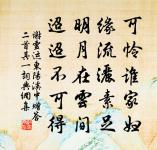 可怜谁家妇
缘流洒素足
明月在云间
迢迢不可得
谢灵运东阳溪中赠答
二首其一词典佣集